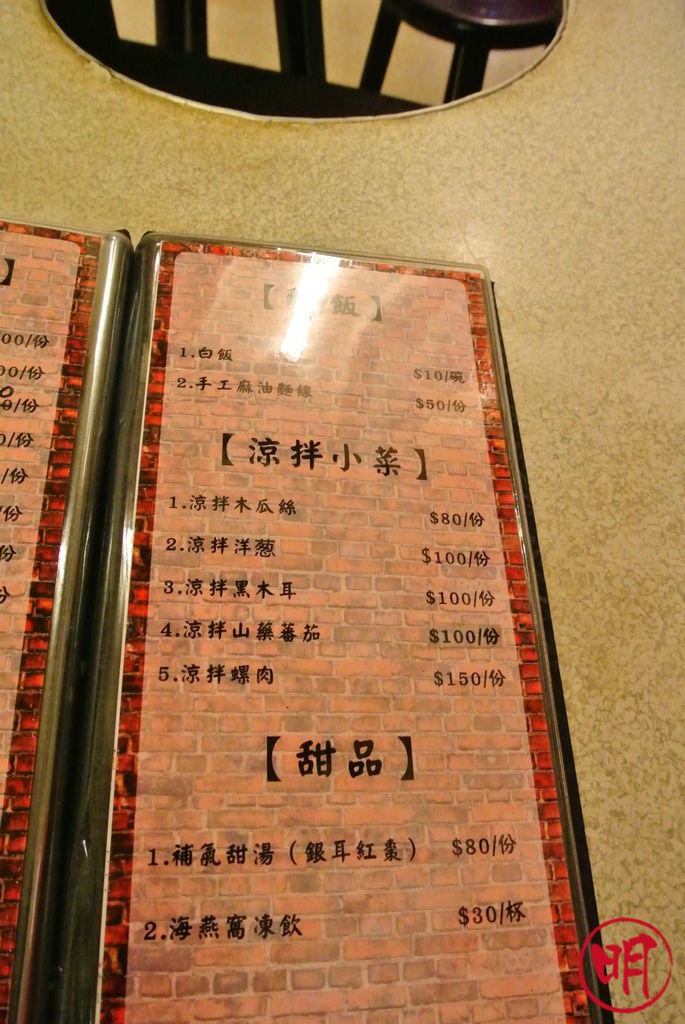 】
00/份
00/份
0/份
0/份
/份
/份
份
飯】
1.白飯 $10/碗
2.手工麻油麵線 $50/份
【涼拌小菜】
1.涼拌木瓜絲 $80/份
2.涼拌洋蔥 $100/份
3.涼拌黑木耳 $100/份
4.涼拌山藥蕃茄 $100/份
5.涼拌螺肉 $150/份
【甜品】
1.補氣甜湯(銀耳紅棗) $80/份
2.海燕窩凍飲 $30/杯
明